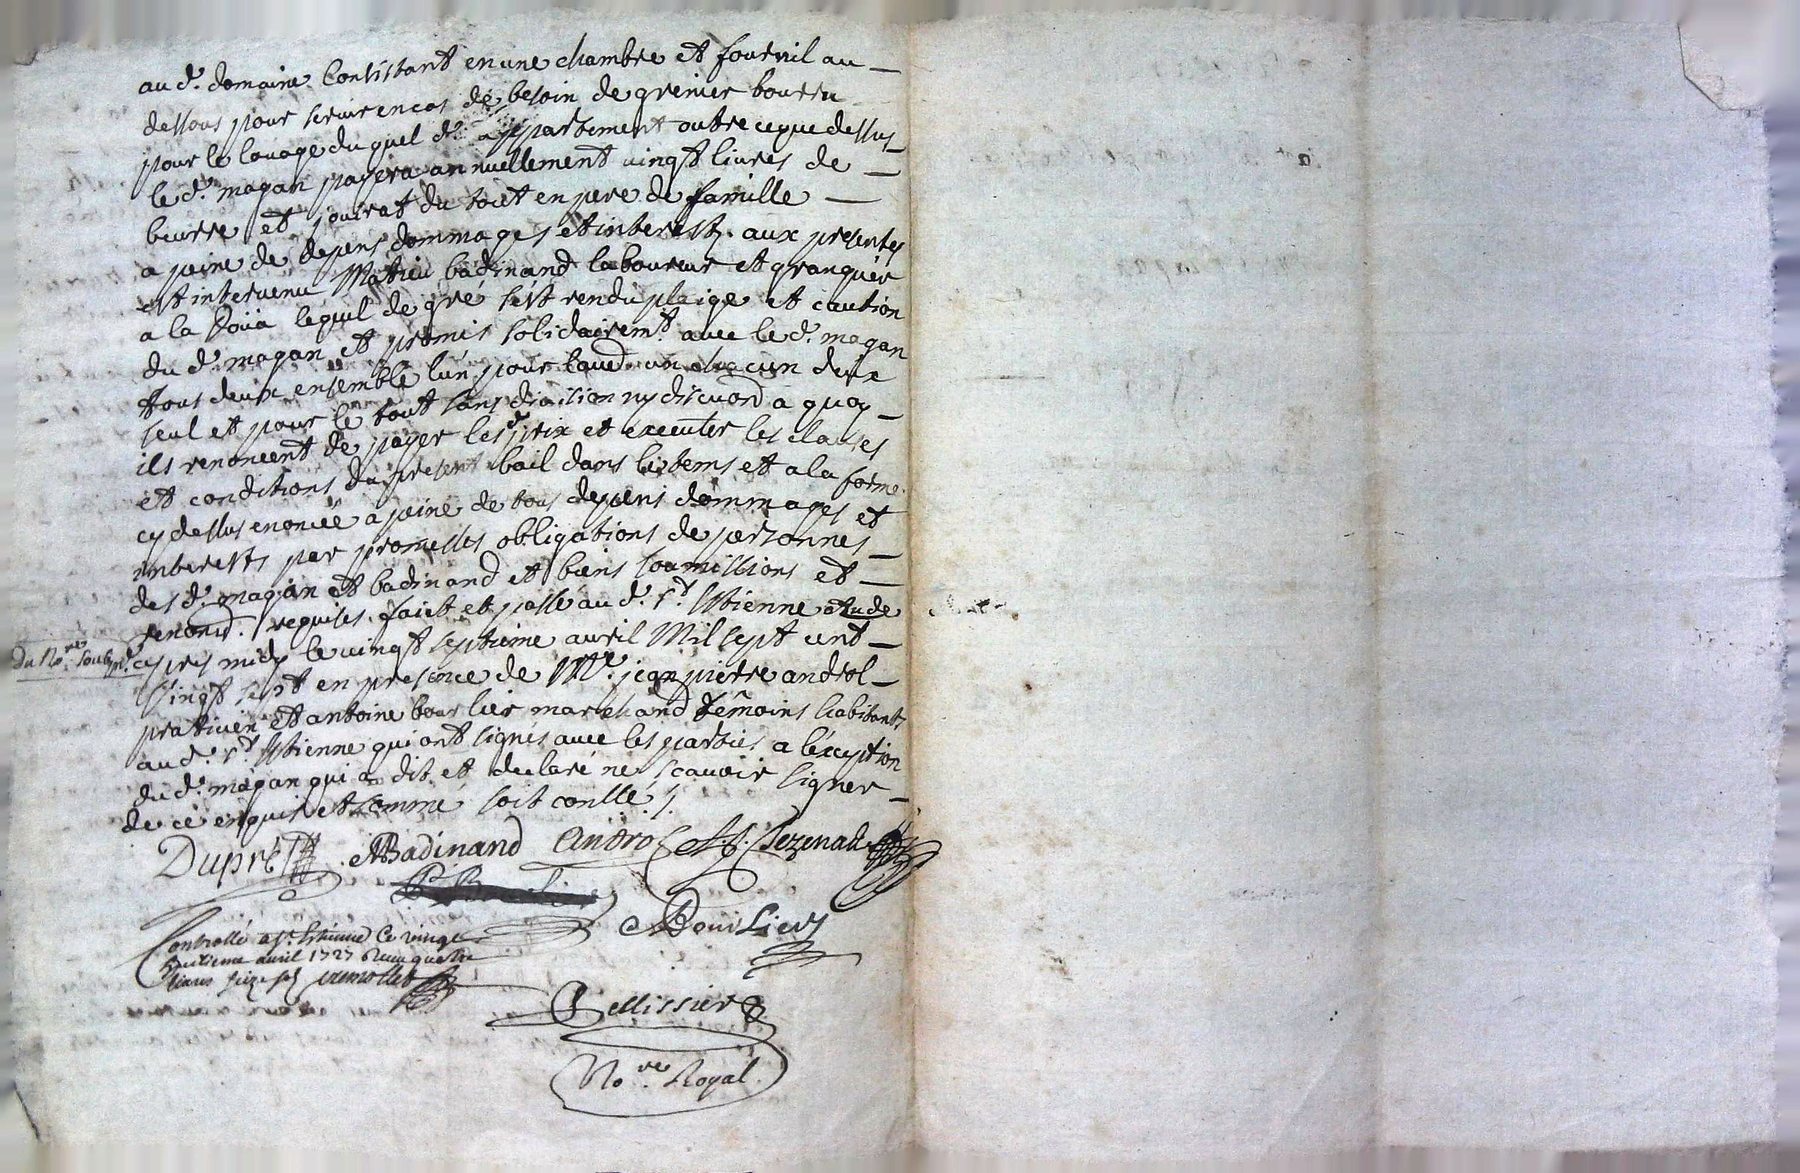 au d. domaine Consistant en une chambre et fournil au
dessous pour servir en cas de besoin de grenier bourru
pour le louage du quel d. appartement outre ce que dessus
le d. magan payera annuellement vingt livres de
beurre et jouirat du tout en pere de famille
a peine de depens dommages et interests. aux presentes
est intervenu Mathieu badinand laboureur et granguér
a la lequel de gré s'est rendu pleige et caution
du d. magan et promis solidairemt. avec le d. magan
tous deux ensemble l'un pour l'autre un chacun deux
seul et pour le tout sans division ny discuond a quoy
ils renoncent de payer les d. prix et executer les clauses
et conditions du present bail dans les tems et a la forme
cy dessus enoncée a peine de tous depens dommages et
interests par promesses obligations de personnes
des d. magan et badinand et biens soumissions et
renond. requises. faict et passé au d. st. Estienne etude
du Nore. soubsné. apres midy le vingt septieme avril Mil sept cent
vingt sept en presence de Me. jean pierre androl
praticien et antoine bourlier marchand témoins habitants
au d. st. Estienne qui ont signés avec les parties a l'exception
du d. magan qui a dit et declaré ne scavoir signer
de ce enquis et sommé soit conllé /.
Dupré MBadinand Androl
ABourlier
Controllé a st. Estienne Ce vingt
huitieme avril 1727 Reçu quatre
livres seize sols
Pellissier
Nore. Royal